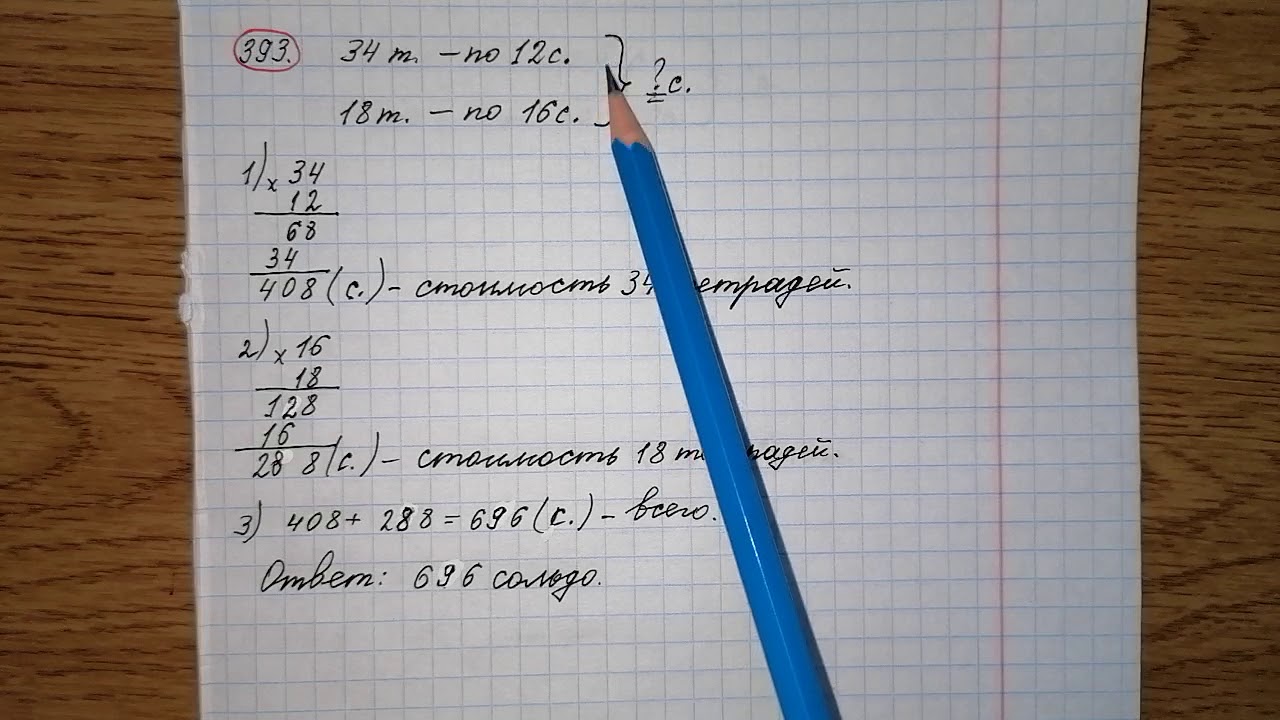 393. 34 т. – по 12 с.
18 т. – по 16 с. } ? с.
1) х 34
12
68
34
408 (с.) – стоимость 34 етрадей.
2) х 16
18
128
16
288 (с.) – стоимость 18 т
3) 408 + 288 = 696 (с.) – всего.
Ответ: 696 сольдо.